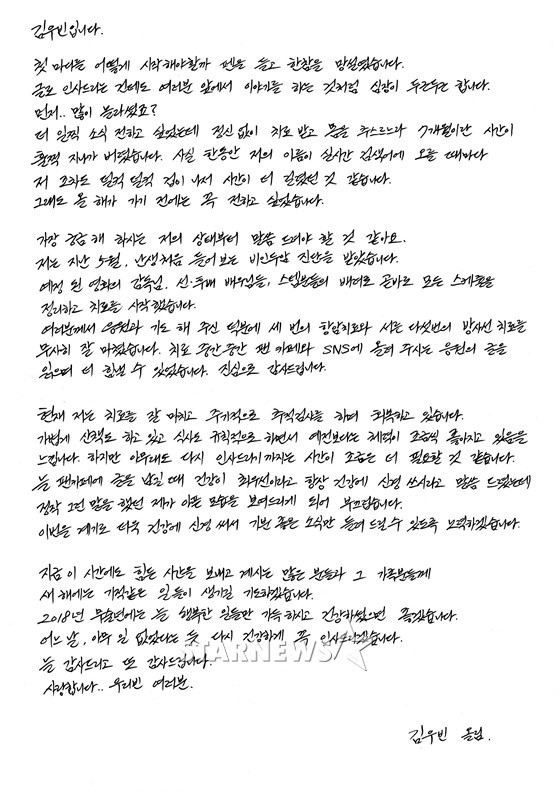 김우빈입니다.
첫 마디를 어떻게 시작해야할까 펜을 들고 한참을 망설였습니다.
글로 인사드리는 건데도 여러분 앞에서 이야기를 하는 것처럼 심장이 두근두근 합니다.
먼저.. 많이 놀라셨죠?
더 일찍 소식 전하고 싶었는데 정신 없이 치료 받고 몸을 추스르느라 7개월이란 시간이
훌쩍 지나가 버렸습니다. 사실 한동안 저의 이름이 실시간 검색어에 오를 때마다
저 조차도 덜컥 덜컥 겁이 나서 시간이 더 길었던 것 같습니다.
그래도 올 해가 가기 전에는 꼭 전하고 싶었습니다.
가장 궁금해 하시는 저의 상태부터 말씀 드려야 할 것 같아요.
저는 지난 5월, 난생처음 들어 보는 비인두암 진단을 받았습니다.
예정 된 영화의 감독님, 선·후배 배우님들, 스탭분들의 배려로 곧바로 모든 스케줄을
정리하고 치료를 시작했습니다.
여러분께서 응원과 기도 해 주신 덕분에 세 번의 항암치료와 서른 다섯번의 방사선 치료를
무사히 잘 마쳤습니다. 치료 중간중간 팬 카페와 SNS에 올려 주시는 응원의 글을
읽으며 더 힘낼 수 있었습니다. 진심으로 감사드립니다.
현재 저는 치료를 잘 마치고 주기적으로 추적검사를 하며 회복하고 있습니다.
가볍게 산책도 하고 있고 식사도 규칙적으로 하면서 예전보다는 체력이 조금씩 좋아지고 있음을
느낍니다. 하지만 아무래도 다시 인사드리기까지는 시간이 조금은 더 필요할 것 같습니다.
늘 팬카페에 글을 남길 때 건강이 최우선이라고 항상 건강에 신경 쓰시라고 말씀 드렸는데
정작 그런 말을 했던 제가 아픈 모습을 보여드리게 되어 부끄럽습니다.
이번을 계기로 더욱 건강에 신경 써서 기분 좋은 소식만 들려 드릴 수 있도록 노력하겠습니다.
지금 이 시간에도 힘든 시간을 보내고 계시는 많은 분들과 그 가족분들께
새 해에는 기적같은 일들이 생기길 기도하겠습니다.
2018년 무술년에는 늘 행복한 일들만 가득하시고 건강하셨으면 좋겠습니다.
어느 날, 아무 일 없었다는 듯 다시 건강하게 꼭 인사드리겠습니다.
STARNEWS
늘 감사드리고 또 감사드립니다.
사랑합니다.. 우리빈 여러분.
김우빈 올림.